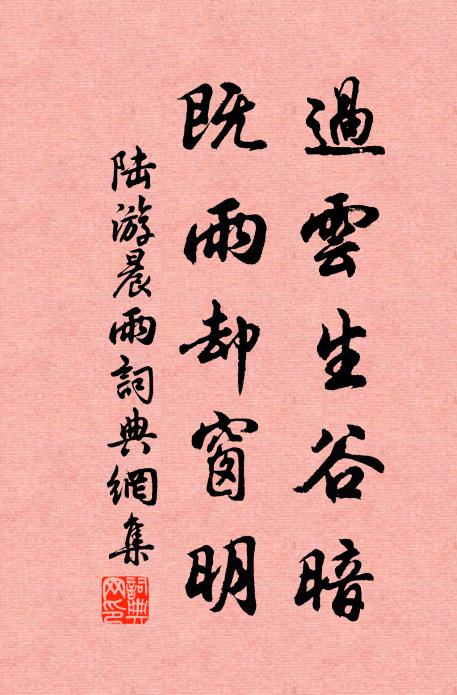 過雲生谷暗
既雨却窗明
陆游晨雨詞典網集
詞典
网印